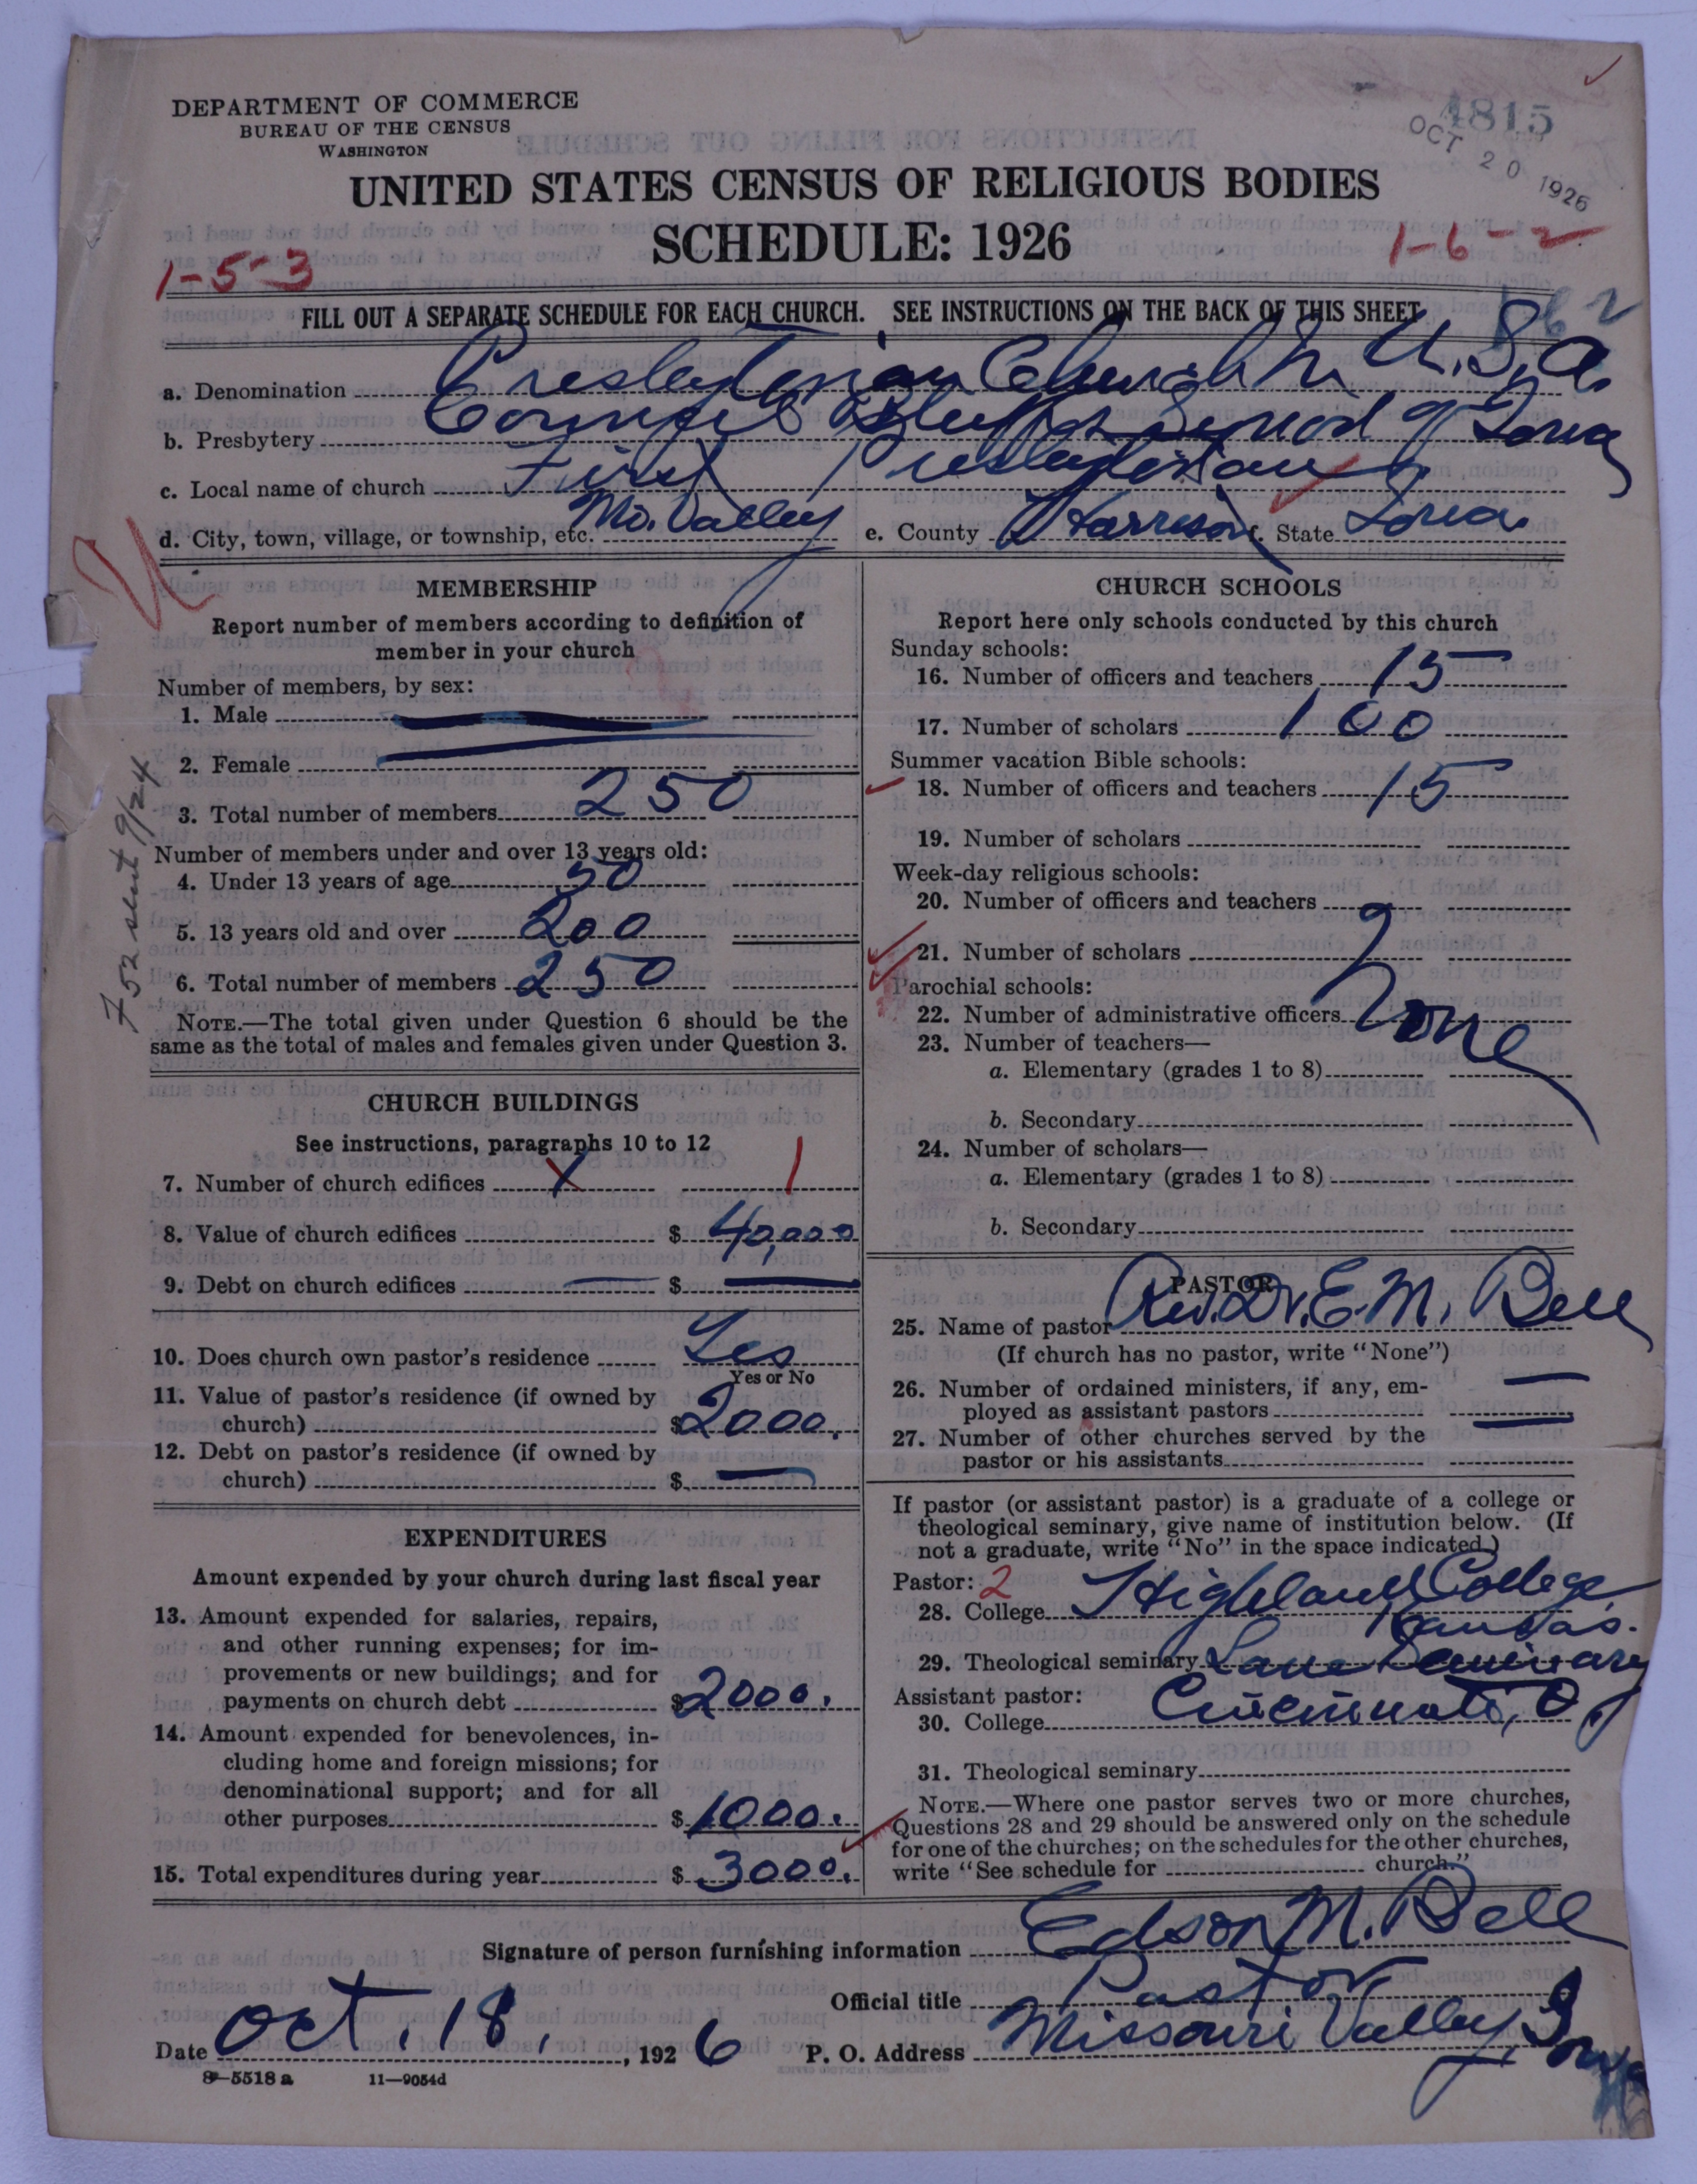 DEPARTMENT OF COMMERCE
BUREAU OF THE CENSUS
WASHINGTON
4815
OCT 20 1926
UNITED STATES CENSUS OF RELIGIOUS BODIES
SCHEDULE: 1926
1-5-3
1-6-2
FILL OUT A SEPARATE SCHEDULE FOR EACH CHURCH. SEE INSTRUCTIONS ON THE BACK OF THIS SHEET
a. Denomination Presbyterian Church in U.S.A.
b. Presbytery Council Bluffs Synod of Iowa
c. Local name of church First Presbyterian
d. City, town, village, or township, etc. Mo. Valley e. County Harrison f. State Iowa.
MEMBERSHIP
Report number of members according to definition of
member in your church
Number of members, by sex:
1. Male
2. Female
3. Total number of members 250
Number of members under and over 13 years old:
4. Under 13 years of age 50
5. 13 years old and over 200
6. Total number of members 250
NOTE.—The total given under Question 6 should be the
same as the total of males and females given under Question 3.
752 sent 9/24
CHURCH BUILDINGS
See instructions, paragraphs 10 to 12
7. Number of church edifices X 1
8. Value of church edifices $ 40,000
9. Debt on church edifices — $ —
10. Does church own pastor's residence Yes
Yes or No
11. Value of pastor's residence (if owned by
church) $ 2000.
12. Debt on pastor's residence (if owned by
church) $ —
EXPENDITURES
Amount expended by your church during last fiscal year
13. Amount expended for salaries, repairs,
and other running expenses; for im-
provements or new buildings; and for
payments on church debt $ 2000.
14. Amount expended for benevolences, in-
cluding home and foreign missions; for
denominational support; and for all
other purposes $ 1000.
15. Total expenditures during year $ 3000.
CHURCH SCHOOLS
Report here only schools conducted by this church
Sunday schools:
16. Number of officers and teachers 15
17. Number of scholars 100
Summer vacation Bible schools:
18. Number of officers and teachers 15
19. Number of scholars
Week-day religious schools:
20. Number of officers and teachers
21. Number of scholars
Parochial schools:
22. Number of administrative officers None
23. Number of teachers—
a. Elementary (grades 1 to 8)
b. Secondary
24. Number of scholars—
a. Elementary (grades 1 to 8)
b. Secondary
PASTOR
25. Name of pastor Rev. Dr. E. M. Bell
(If church has no pastor, write "None")
26. Number of ordained ministers, if any, em-
ployed as assistant pastors —
27. Number of other churches served by the
pastor or his assistants
If pastor (or assistant pastor) is a graduate of a college or
theological seminary, give name of institution below. (If
not a graduate, write "No" in the space indicated.)
Pastor: 2
28. College Highland College,
Kansas.
29. Theological seminary Lane Seminary
Assistant pastor: Cincinnati, O
30. College
31. Theological seminary
NOTE.—Where one pastor serves two or more churches,
Questions 28 and 29 should be answered only on the schedule
for one of the churches; on the schedules for the other churches,
write "See schedule for church."
Signature of person furnishing information Edson M. Bell
Official title Pastor
Date Oct. 18, 1926 P. O. Address Missouri Valley, Iowa
8—5518 a 11—9054d